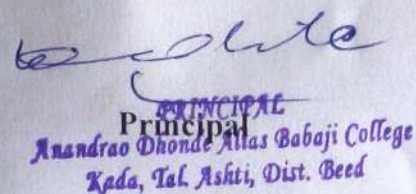 PRINCIPAL
Principal
Anandrao Dhonde Alias Babaji College
Kada, Tal. Ashti, Dist. Beed